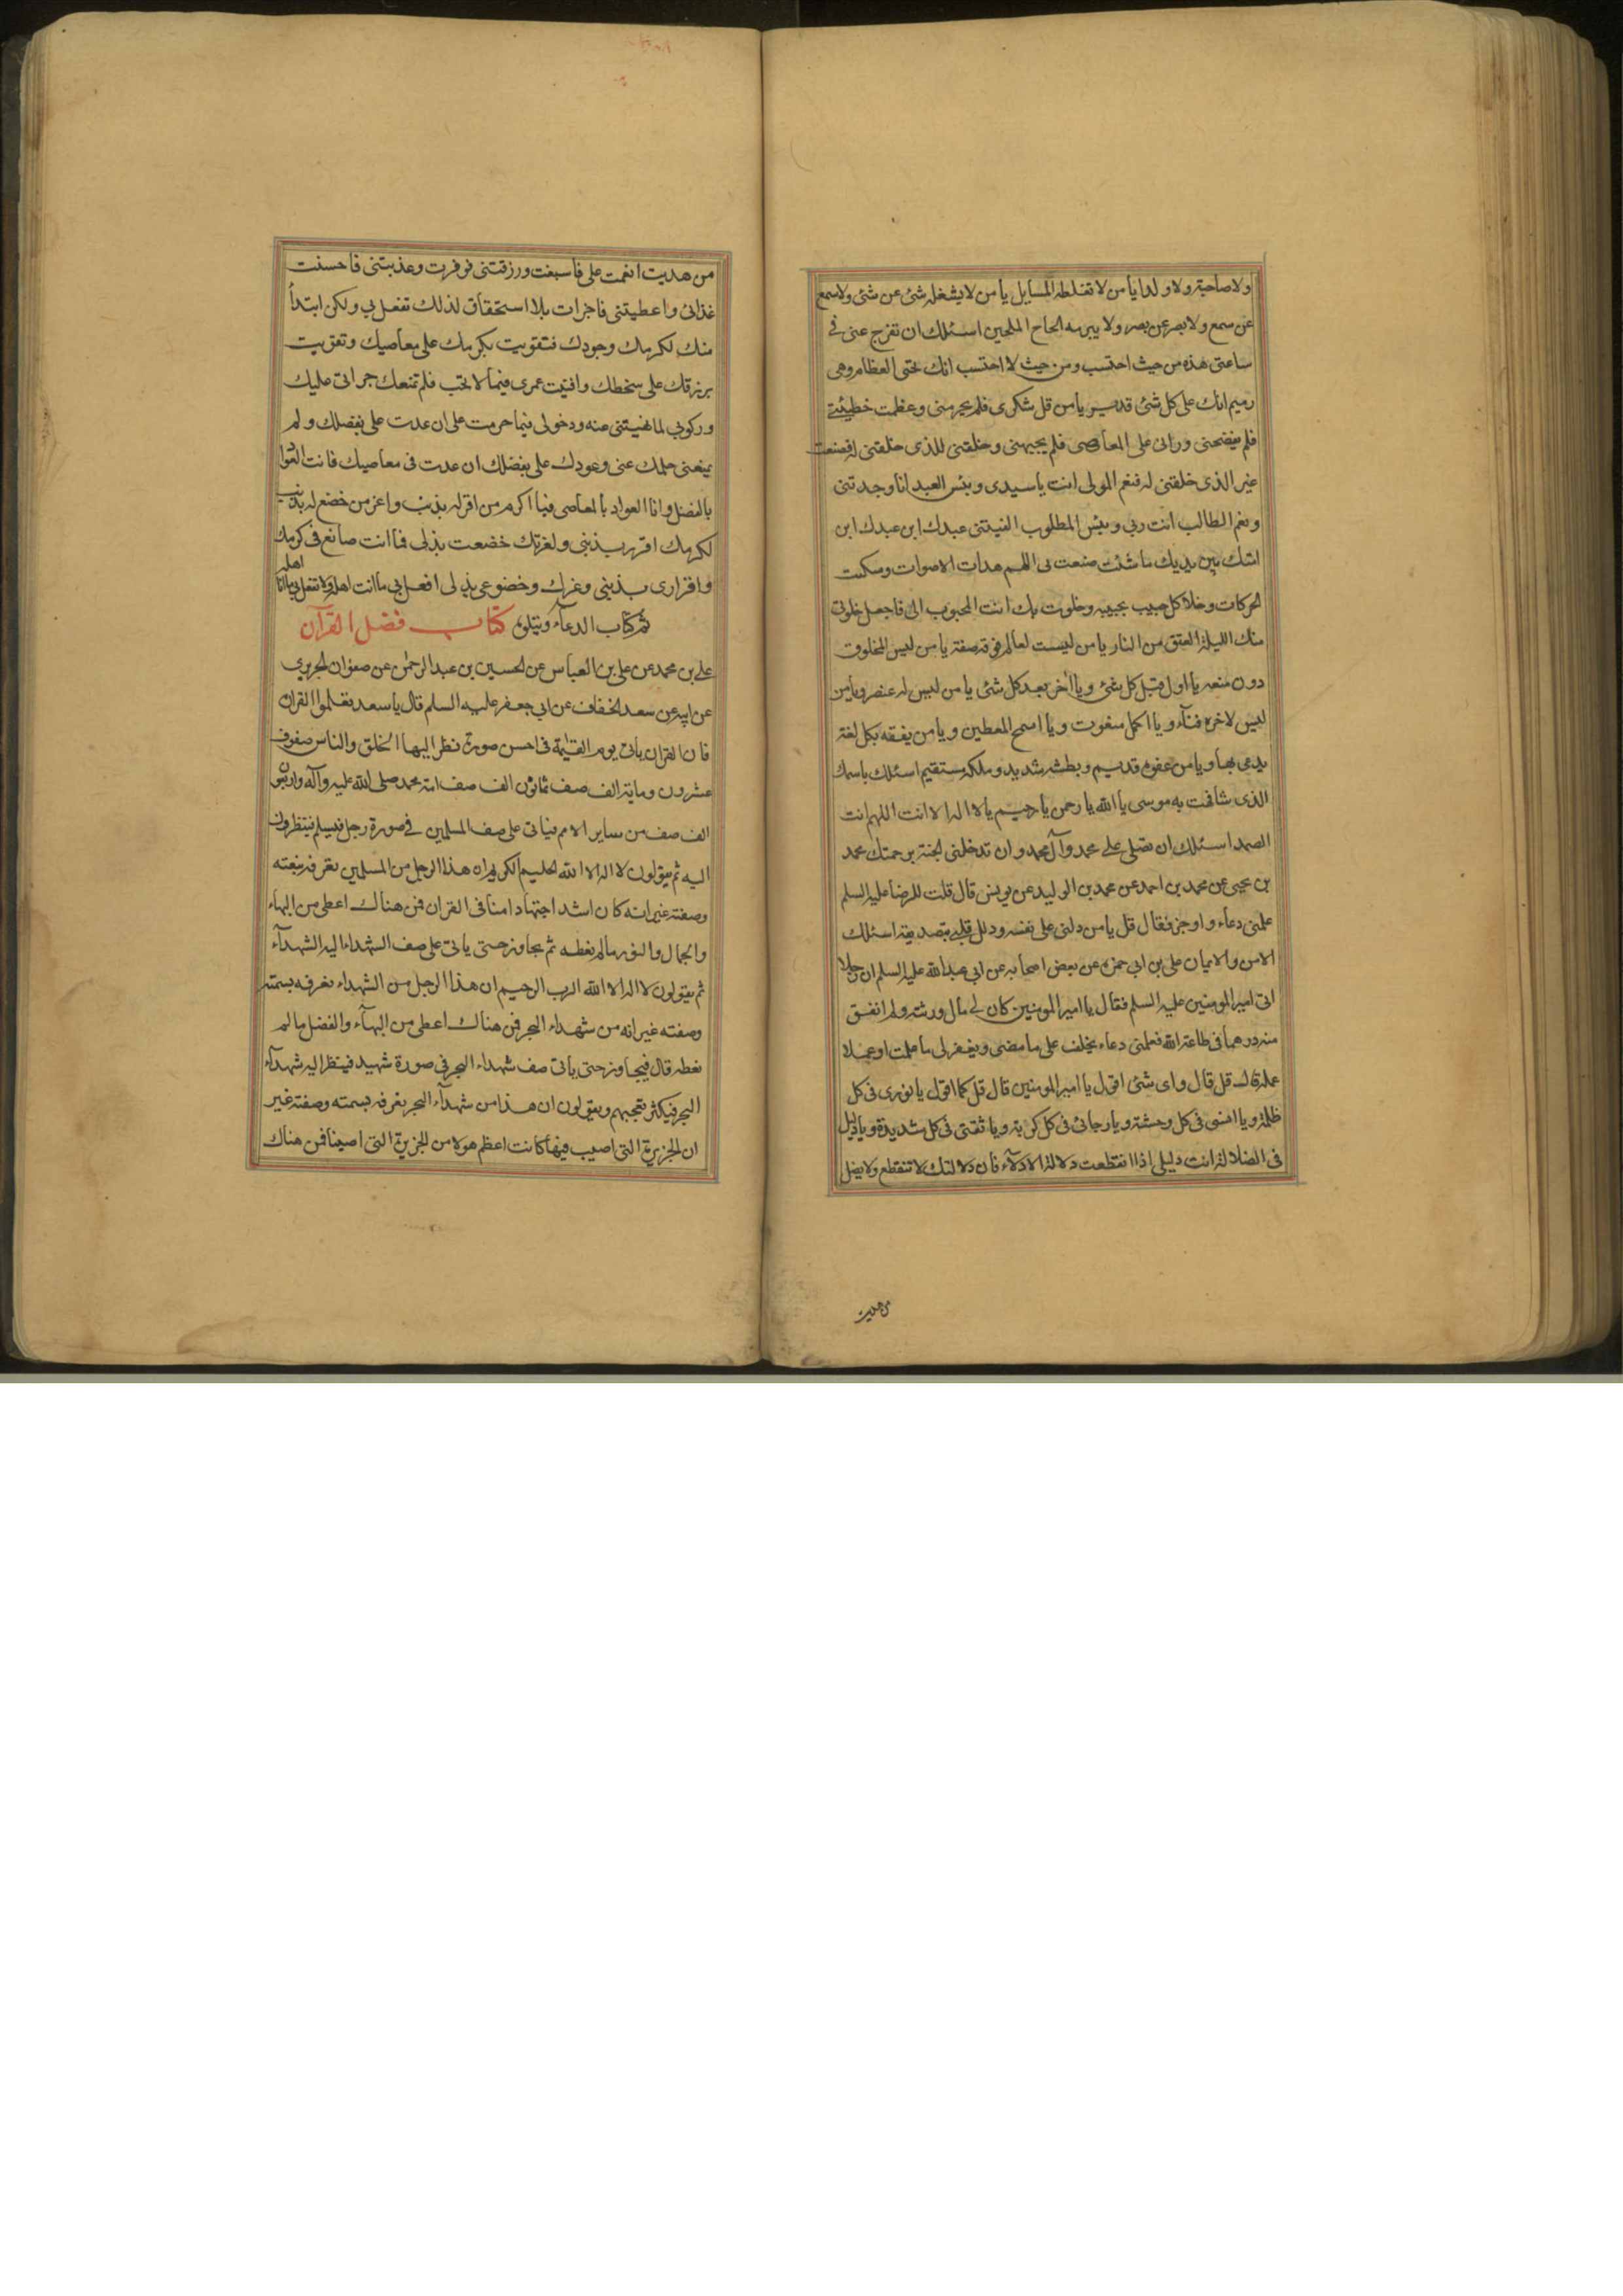 ولا صاحبة ولا ولدا يا من لا تغلطه المسايل يا من لا يشغله شئ عن شئ ولا سمع
عن سمع ولا بصر عن بصر ولا يبرمه الحاح الملحين اسئلك ان تفرج عنى فى
ساعتى هذه من حيث احتسب ومن حيث لا احتسب انك تحيى العظام وهى
رميم انك على كل شئ قدير يا من قل شكرى فلم يحرمنى وعظمت خطيئتى
فلم يفضحنى ورانى على المعاصى فلم يجبهنى وخلقنى للذى خلقنى له فصنعت
غير الذى خلقنى له فنعم المولى انت يا سيدى وبئس العبد انا وجدتنى
ونعم الطالب انت ربى وبئس المطلوب الفيتنى عبدك ابن عبدك ابن
امتك بين يديك ما شئت صنعت بى اللهم هدات الاصوات وسكنت
الحركات وخلا كل حبيب بحبيبه وخلوت بك انت المحبوب الى فاجعل خلوتى
منك الليلة العتق من النار يا من ليست لعالم فوقه صفة يا من ليس لمخلوق
دونه منعه يا اول قبل كل شئ ويا آخر بعد كل شئ يا من ليس له عنصر ويا من
ليس لاخره فناء ويا اكمل منعوت ويا اسمح المعطين ويا من يفقه بكل لغة
يدعى بها ويا من عفوه قديم وبطشه شديد وملكه مستقيم اسئلك باسمك
الذى شافهت به موسى يا الله يا رحمن يا رحيم يا لا اله الا انت اللهم انت
الصمد اسئلك ان تصلى على محمد وآل محمد وان تدخلنى الجنة برحمتك محمد
بن يحيى عن محمد بن احمد عن محمد بن الوليد عن يونس قال قلت للرضا عليه السلم
علمنى دعاء واوجز فقال قل يا من دلنى على نفسه وذلل قلبى بتصديقه اسئلك
الامن والايمان على بن ابى حمزه عن بعض اصحابه عن ابى عبد الله عليه السلم ان رجلا
اتى امير المومنين عليه السلم فقال يا امير المومنين كان لى مال ورثته ولم انفق
منه درهما فى طاعة الله فعلمنى دعاء يخلف على ما مضى ويغفر لى ما عملت او عملا
عمله قال قل قال واى شئ اقول يا امير المومنين قال قل كما اقول يا نورى فى كل
ظلمة ويا انسى فى كل وحشة ويا رجائى فى كل كربة ويا ثقتى فى كل شديدة ويا دليلى
فى الضلالة انت دليلى اذا انقطعت دلالة الادلاء فان دلالتك لا تنقطع ولا يضل
من هديت
من هديت انعمت على فاسبغت ورزقتنى فوفرت وعذيتنى فاحسنت
غذائى واعطيتنى فاجزلت بلا استحقاق لذلك تفعل بى ولكن ابتدأ
منك لكرمك وجودك فتقويت بكرمك على معاصيك وتقويت
برزقك على سخطك وافنيت عمرى فيما لا تحب فلم تمنعك جراتى عليك
وركوبى لما نهيتنى عنه ودخولى فيما حرمت على ان عدت على بفضلك ولم
يمنعنى حلمك عنى وعودك على بفضلك ان عدت فى معاصيك فانت العوا
بالفضل وانا العواد بالمعاصى فيا اكرم من اقر له بذنب واعز من خضع له بذنب
لكرمك اقررت بذنبى ولعزتك خضعت بذلى فما انت صانع فى كرمك
واقرارى بذنبى وعزك وخضوعى بذلى افعل بى ما انت اهله ولا تفعل بى ما انا
اهله
تم كتاب الدعاء ويتلوه كتاب فضل القرآن
على بن محمد عن على بن العباس عن الحسين بن عبد الرحمن عن صفوان الحريرى
عن ابيه عن سعد الخفاف عن ابى جعفر عليه السلم قال يا سعد تعلموا القران
فان القران ياتى يوم القيمة فى احسن صورة نظر اليها الخلق والناس صفوف
عشرون وماية الف صف ثمانون الف صف امة محمد صلى الله عليه وآله واربعون
الف صف من ساير الامم فياتى على صف المسلمين فى صورة رجل فيسلم فينظرون
اليه ثم يقولون لا اله الا الله الحليم الكريم ان هذا الرجل من المسلمين نعرفه بنعته
وصفته غير انه كان اشد اجتهادا منا فى القران فمن هناك اعطى من البهاء
والجمال والنور ما لم نعطه ثم يجاوز حتى ياتى على صف الشهداء اليه الشهدآء
ثم يقولون لا اله الا الله الرب الرحيم ان هذا الرجل من الشهداء نعرفه بسمته
وصفته غير انه من شهداء البحر فمن هناك اعطى من البهآء والفضل ما لم
نعطه قال فيجاوز حتى ياتى صف شهداء البحر فى صورة شهيد فينظر اليه شهدآء
البحر فيكثر تعجبهم ويقولون ان هذا من شهدآء البحر نعرفه بسمته وصفته غير
ان الجزيرة التى اصيب فيها كانت اعظم هولا من الجزيرة التى اصبنا فمن هناك